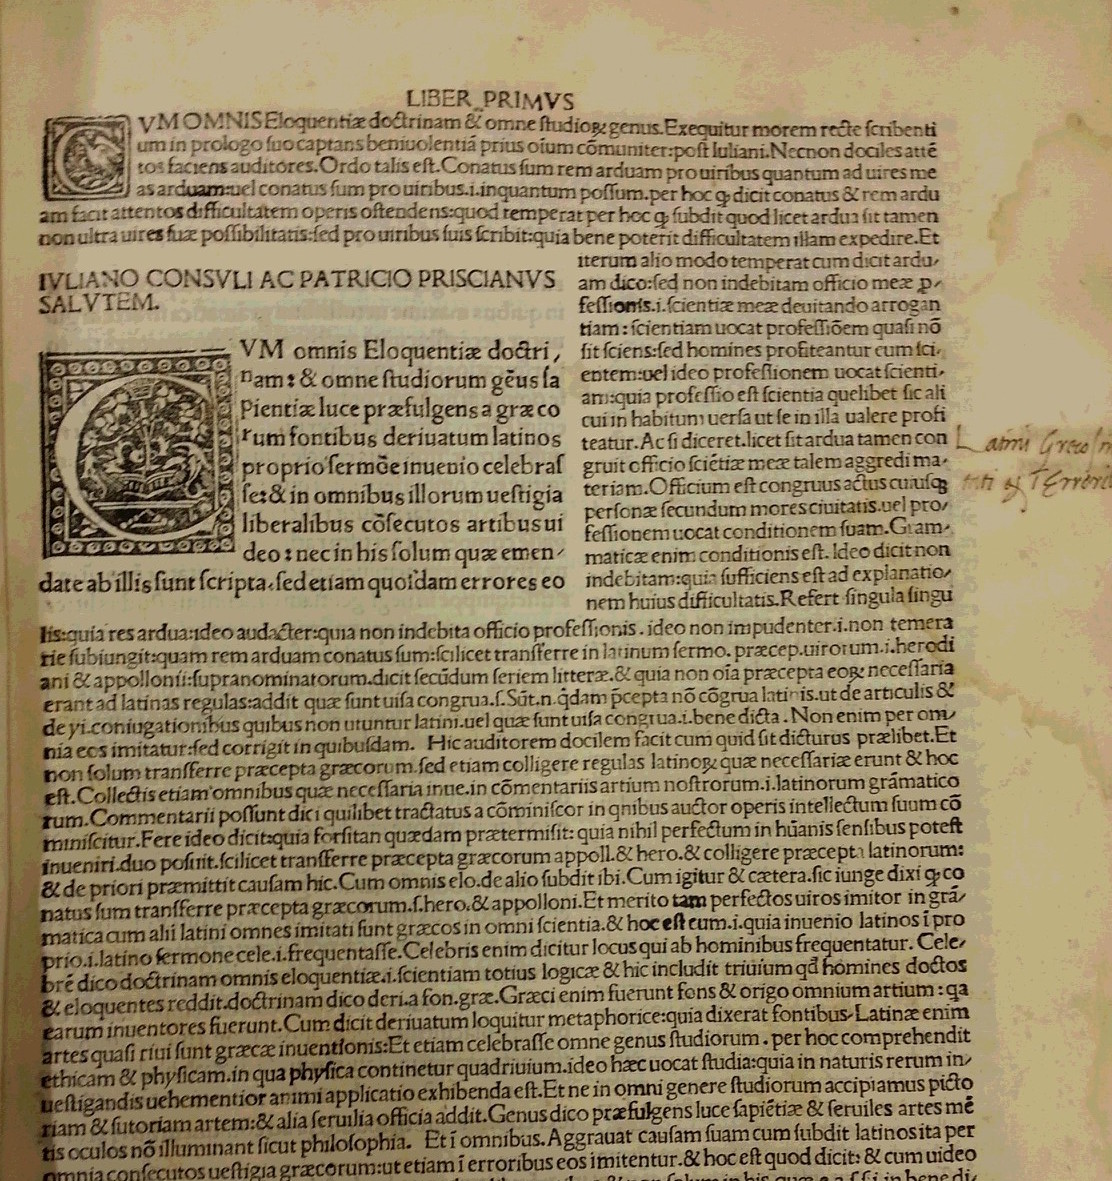 LIBER PRIMVS
CVM OMNIS Eloquentiæ doctrinam & omne ſtudioꝝ genus. Exequitur morem recte ſcribenti
um in prologo ſuo captans beniuolentiã prius oium cõmuniter: poſt Iuliani. Necnon dociles attẽ
tos faciens auditores. Ordo talis eſt. Conatus ſum rem arduam pro uiribus quantum ad uires me
as arduam: uel conatus ſum pro uiribus .i. inquantum poſſum. per hoc ꝙ dicit conatus & rem ardu
am facit attentos difficultatem operis oſtendens: quod temperat per hoc ꝙ ſubdit quod licet ardua ſit tamen
non ultra uires ſuæ poſſibilitatis: ſed pro uiribus ſuis ſcribit: quia bene poterit difficultatem illam expedire. Et
iterum alio modo temperat cum dicit ardu⸗
am dico: ſed non indebitam officio meæ ꝓ⸗
feſſionis .i. ſcientiæ meæ deuitando arrogan
tiam: ſcientiam uocat profeſſiõem quaſi nõ
ſit ſciens: ſed homines profiteantur cum ſci⸗
entem: uel ideo profeſſionem uocat ſcienti⸗
am: quia profeſſio eſt ſcientia quelibet ſic ali
cui in habitum uerſa ut ſe in illa ualere profi
teatur. Ac ſi diceret. licet ſit ardua tamen con
gruit officio ſciẽtiæ meæ talem aggredi ma⸗
teriam. Officium eſt congruus actus cuiuſꝗ
perſonæ ſecundum mores ciuitatis. uel pro⸗
feſſionem uocat conditionem ſuam. Gram⸗
maticæ enim conditionis eſt. Ideo dicit non
indebitam: quia ſufficiens eſt ad explanatio⸗
nem huius difficultatis. Refert ſingula ſingu
IVLIANO CONSVLI AC PATRICIO PRISCIANVS
SALVTEM.
CVM omnis Eloquentiæ doctri⸗
nam: & omne ſtudiorum gẽus ſa
Pientiæ luce præfulgens a græco
rum fontibus deriuatum latinos
proprio ſermõe inuenio celebraſ
ſe: & in omnibus illorum ueſtigia
liberalibus cõſecutos artibus ui
deo: nec in his ſolum quæ emen⸗
date ab illis ſunt ſcripta. ſed etiam quoſdam errores eo
lis: quia res ardua: ideo audacter: quia non indebita officio profeſſionis. ideo non impudenter .i. non temera
rie ſubiungit: quam rem arduam conatus ſum: ſcilicet tranſferre in latinum ſermo. præcep. uirorum .i. herodi
ani & appollonii: ſupranominatorum. dicit ſecũdum ſeriem litteræ. & quia non oĩa præcepta eoꝝ neceſſaria
erant ad latinas regulas: addit quæ ſunt uiſa congrua. ſ. Sũt .n. q̃dam p̃cepta nõ cõgrua latinis. ut de articulis &
de yi. coniugationibus quibus non utuntur latini. uel quæ ſunt uiſa congrua .i. bene dicta. Non enim per om⸗
nia eos imitatur: ſed corrigit in quibuſdam. Hic auditorem docilem facit cum quid ſit dicturus prælibet. Et
non ſolum tranſferre præcepta græcorum. ſed etiam colligere regulas latinoꝝ quæ neceſſariæ erunt & hoc
eſt. Collectis etiam omnibus quæ neceſſaria inue. in cõmentariis artium noſtrorum .i. latinorum grãmatico
rum. Commentarii poſſunt dici quilibet tractatus a cõminiſcor in quibus auctor operis intellectum ſuum cõ
miniſcitur. Fere ideo dicit: quia forſitan quædam prætermiſit: quia nihil perfectum in hũanis ſenſibus poteſt
inueniri. duo poſuit. ſcilicet tranſferre præcepta græcorum appoll. & hero. & colligere præcepta latinorum:
& de priori præmittit cauſam hic. Cum omnis elo. de alio ſubdit ibi. Cum igitur & cætera. ſic iunge dixi ꝙ co
natus ſum tranſferre præcepta græcorum. ſ. hero. & appolloni. Et merito tam perfectos uiros imitor in grã⸗
matica cum alii latini omnes imitati ſunt græcos in omni ſcientia. & hoc eſt cum .i. quia inuenio latinos ĩ pro
prio .i. latino ſermone cele .i. frequentaſſe. Celebris enim dicitur locus qui ab hominibus frequentatur. Cele⸗
brẽ dico doctrinam omnis eloquentiæ .i. ſcientiam totius logicæ & hic includit triuium qď homines doctos
& eloquentes reddit. doctrinam dico deri. a fon. græ. Græci enim fuerunt fons & origo omnium artium: qa
earum inuentores fuerunt. Cum dicit deriuatum loquitur metaphorice: quia dixerat fontibus. Latinæ enim
artes quaſi riui ſunt græcæ inuentionis: Et etiam celebraſſe omne genus ſtudiorum. per hoc comprehendit
ethicam & phyſicam. in qua phyſica continetur quadriuium. ideo hæc uocat ſtudia: quia in naturis rerum in⸗
ueſtigandis uehementior animi applicatio exhibenda eſt. Et ne in omni genere ſtudiorum accipiamus picto
riam & ſutoriam artem: & alia ſeruilia officia addit. Genus dico præfulgens luce ſapiẽtiæ & ſeruiles artes mẽ
tis oculos nõ illuminant ſicut philoſophia. Et ĩ omnibus. Aggrauat cauſam ſuam cum ſubdit latinos ita per
omnia conſecutos ueſtigia græcorum: ut etiam ĩ erroribus eos imitentur. & hoc eſt quod dicit: & cum uideo